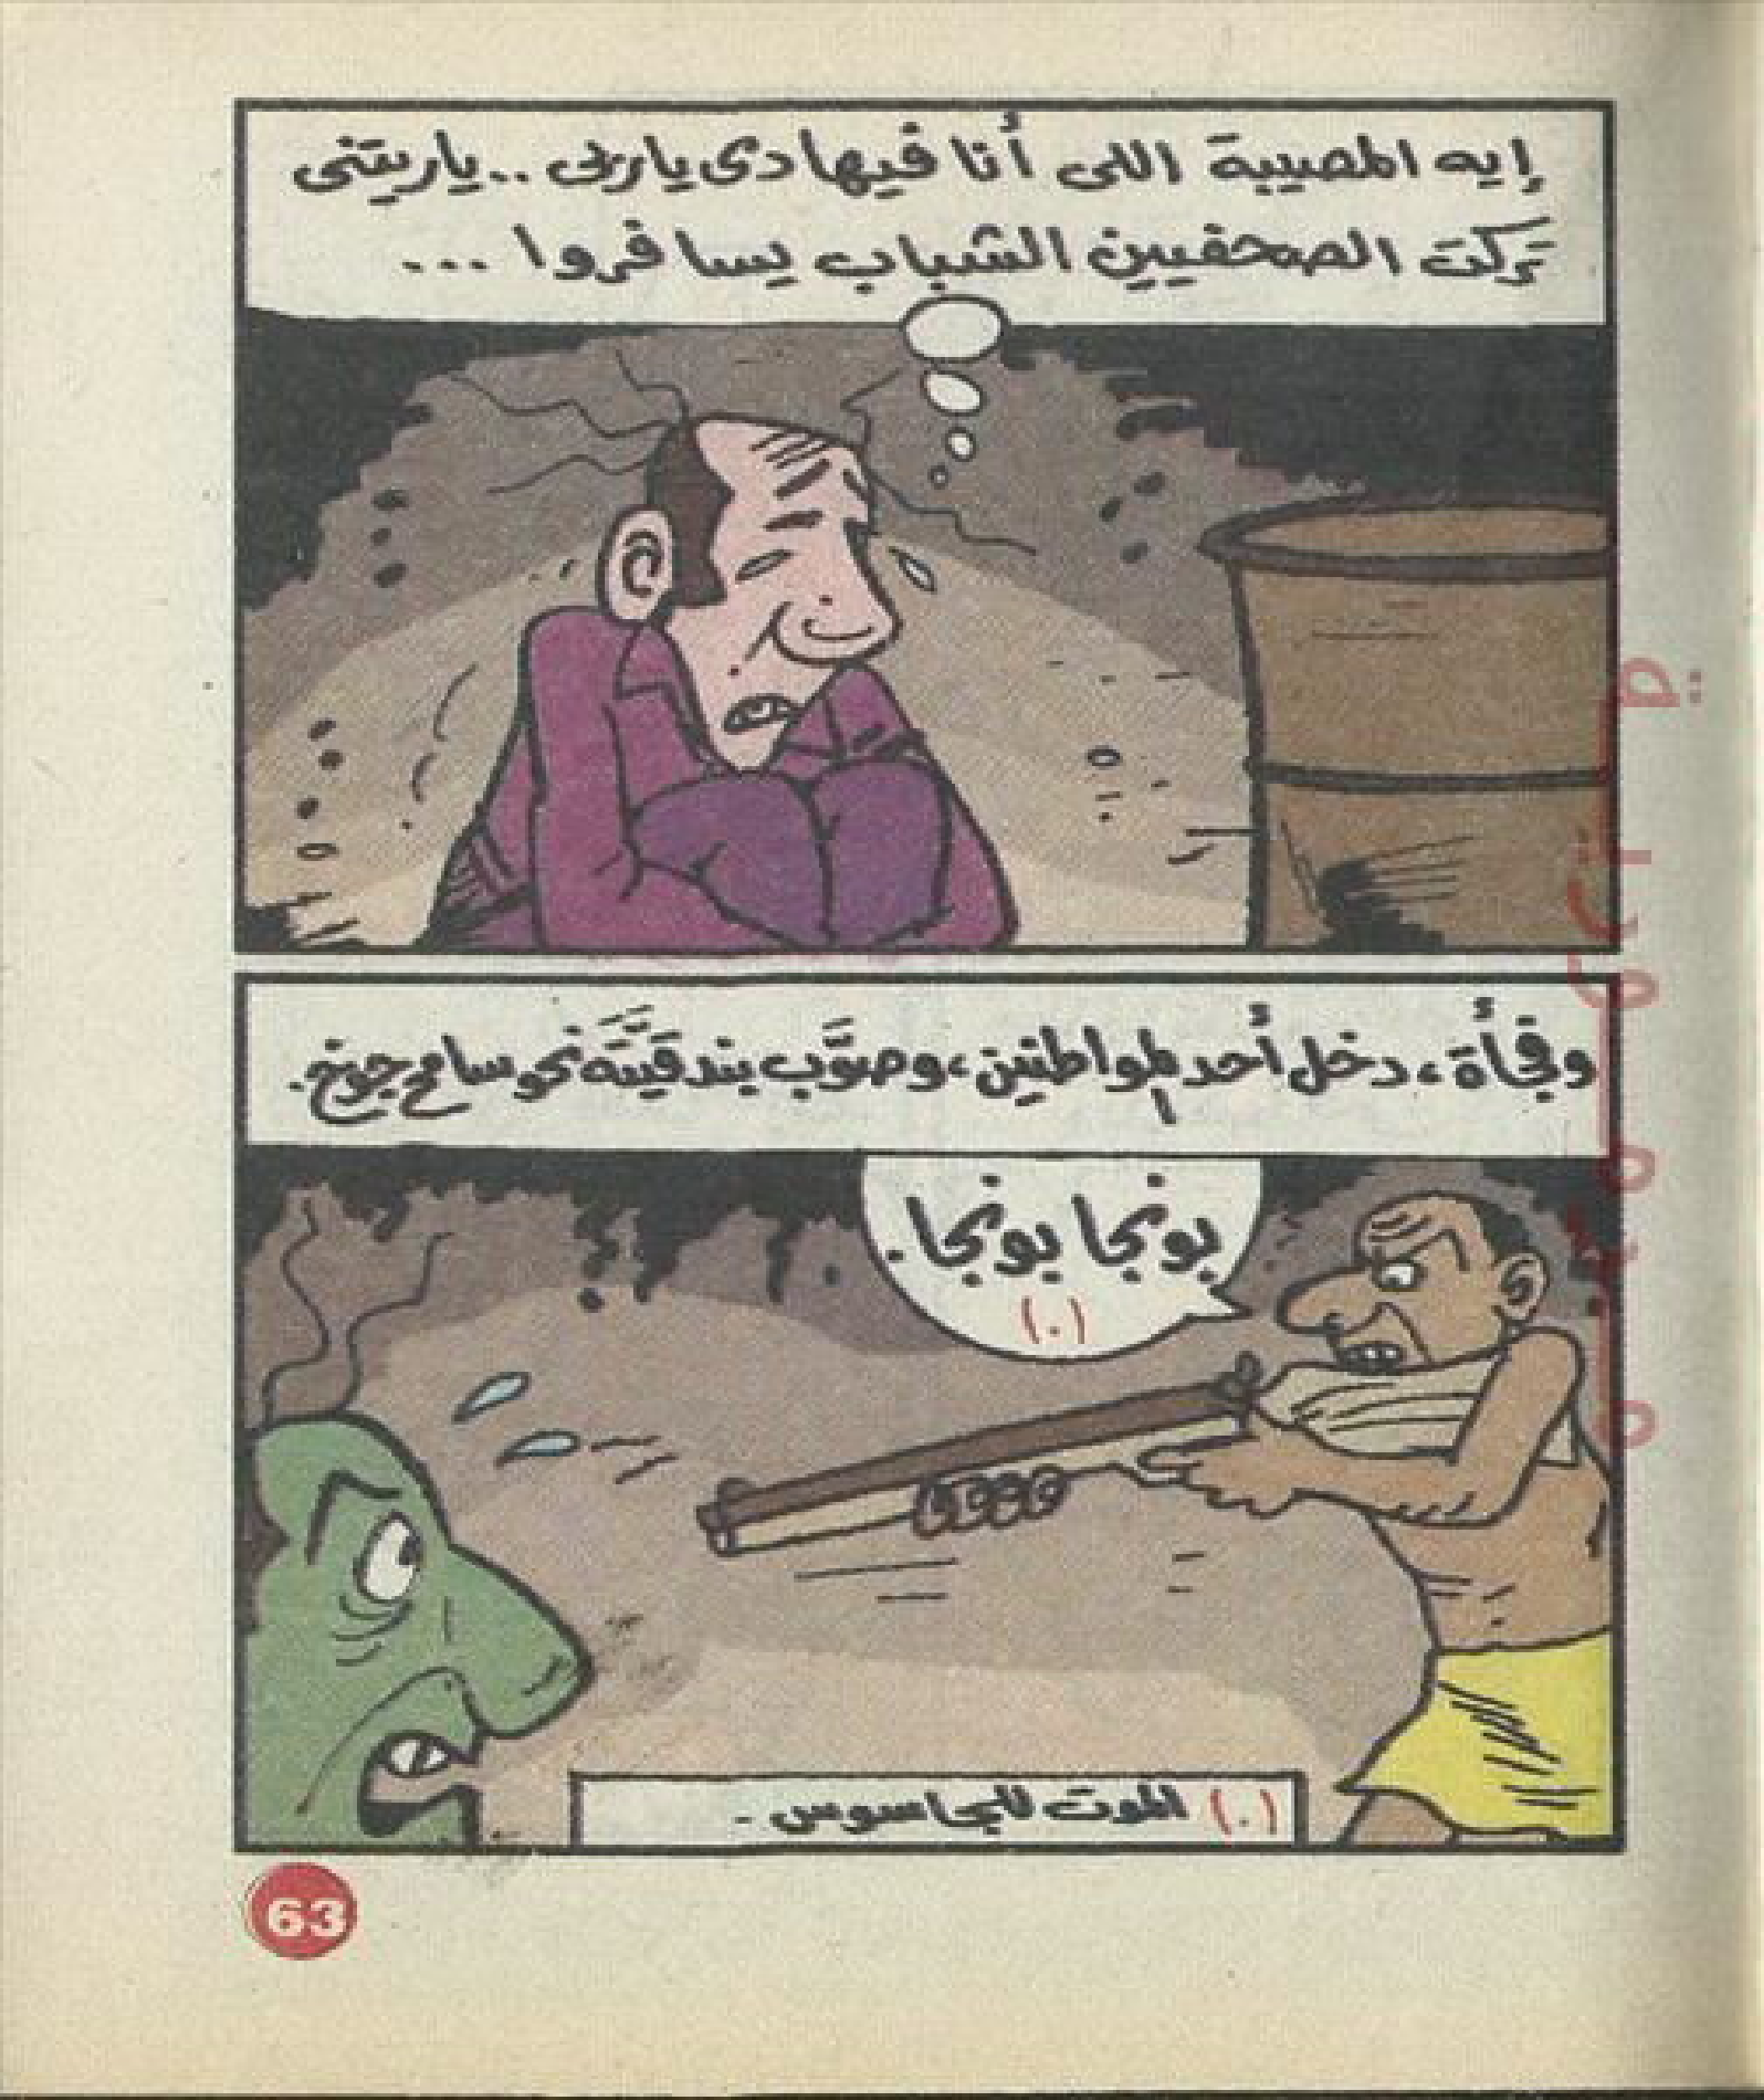 إيه المصيبة اللى أنا فيها دى ياربى .. ياريتنى
تركت الصحفيين الشباب يسافروا ...
وفجأة، دخل أحد المواطنين، وصوَّب بندقيَّتَه نحو سامح جونج.
بونجا بونجا.
(٠)
(٠) الموت للجاسوس .
63